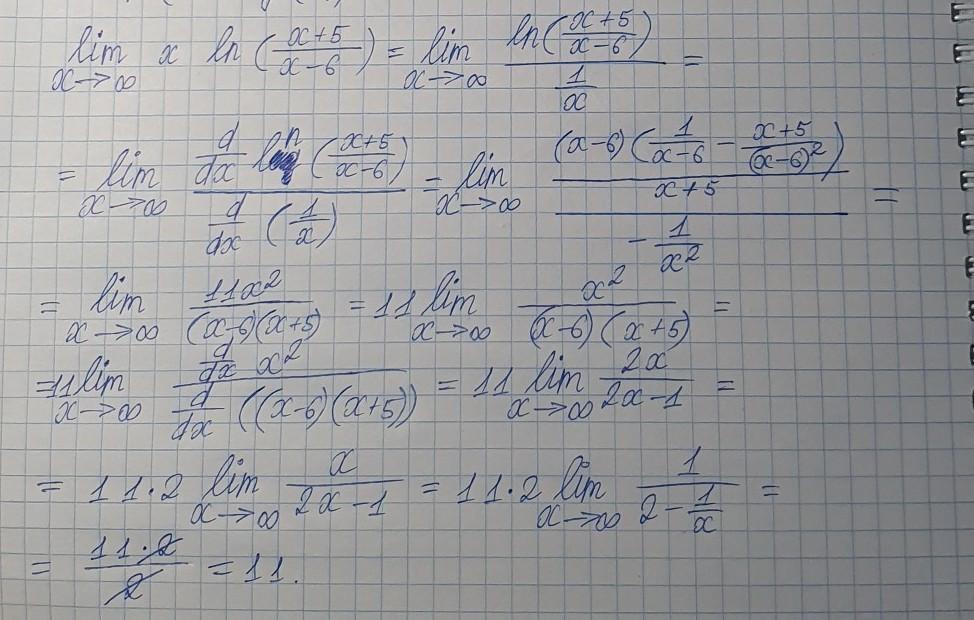 lim x→∞ x ln((x+5)/(x-6)) = lim x→∞ ln((x+5)/(x-6)) / (1/x) =
= lim x→∞ (d/dx ln((x+5)/(x-6))) / (d/dx (1/x)) = lim x→∞ (((x-6)(1/(x-6) - (x+5)/(x-6)²)) / (x+5)) / (-1/x²) =
= lim x→∞ 11x² / ((x-6)(x+5)) = 11 lim x→∞ x² / ((x-6)(x+5)) =
=11 lim x→∞ (d/dx x²) / (d/dx ((x-6)(x+5))) = 11 lim x→∞ 2x / (2x-1) =
= 11·2 lim x→∞ x / (2x-1) = 11·2 lim x→∞ 1 / (2 - 1/x) =
= (11·2) / 2 = 11.